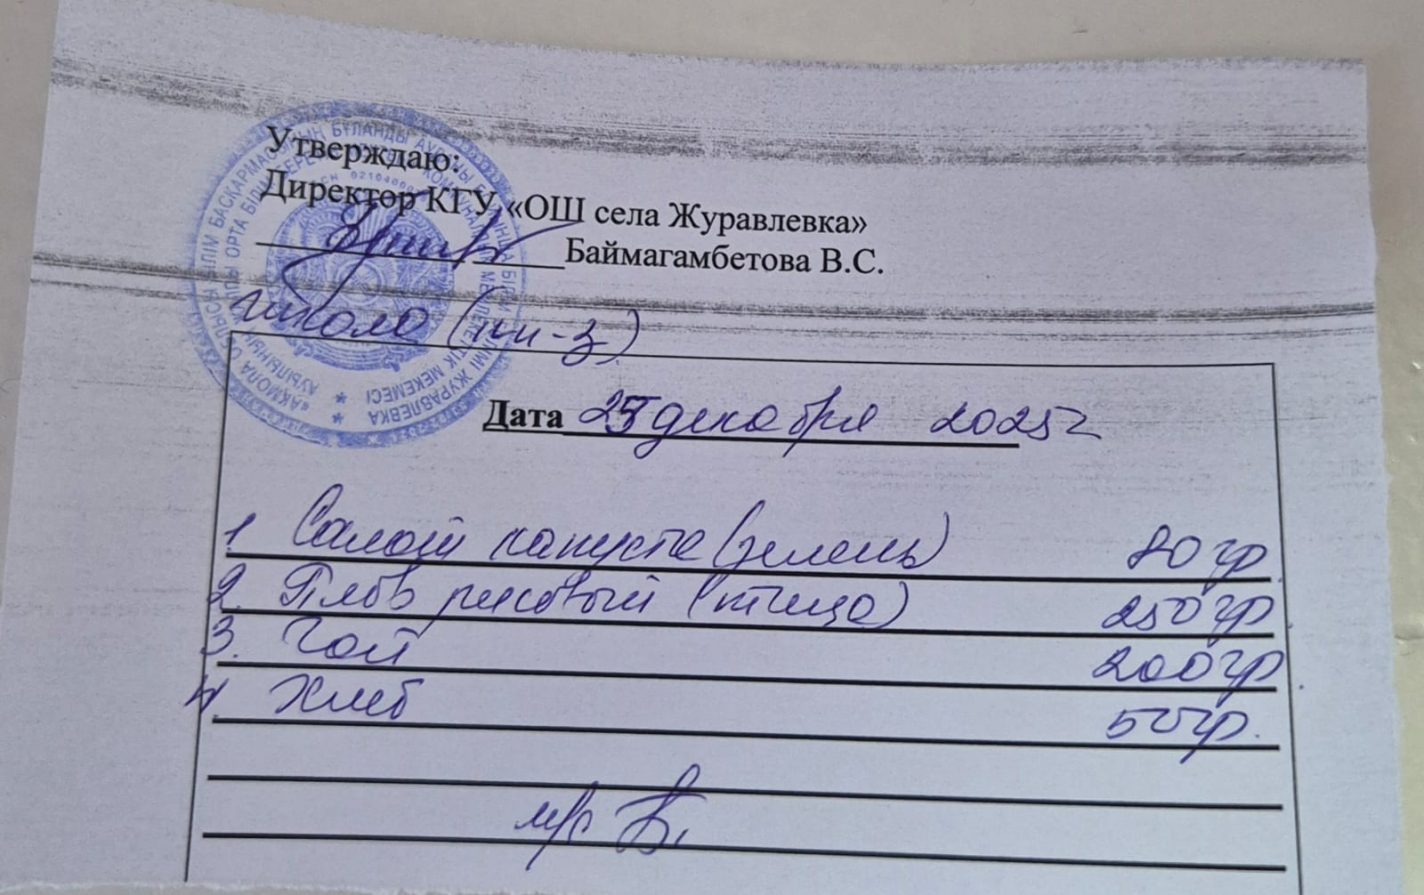 Утверждаю:
Директор КГУ «ОШ села Журавлевка»
Баймагамбетова В.С.
школа (ин-з)
Дата 25 декабря 2025г
1. Салат капуста (зелень) 80 гр.
2. Плов рисовый (птица) 250 гр.
3. Чай 200 гр.
4. Хлеб 50 гр.
м/с